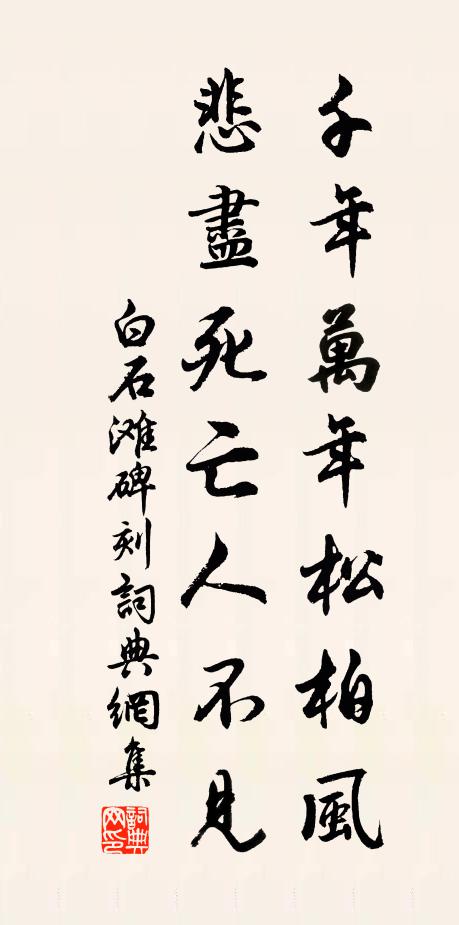 千年萬年松柏風
悲盡死亡人不見
白石滩碑刻詞典網集
詞典網印